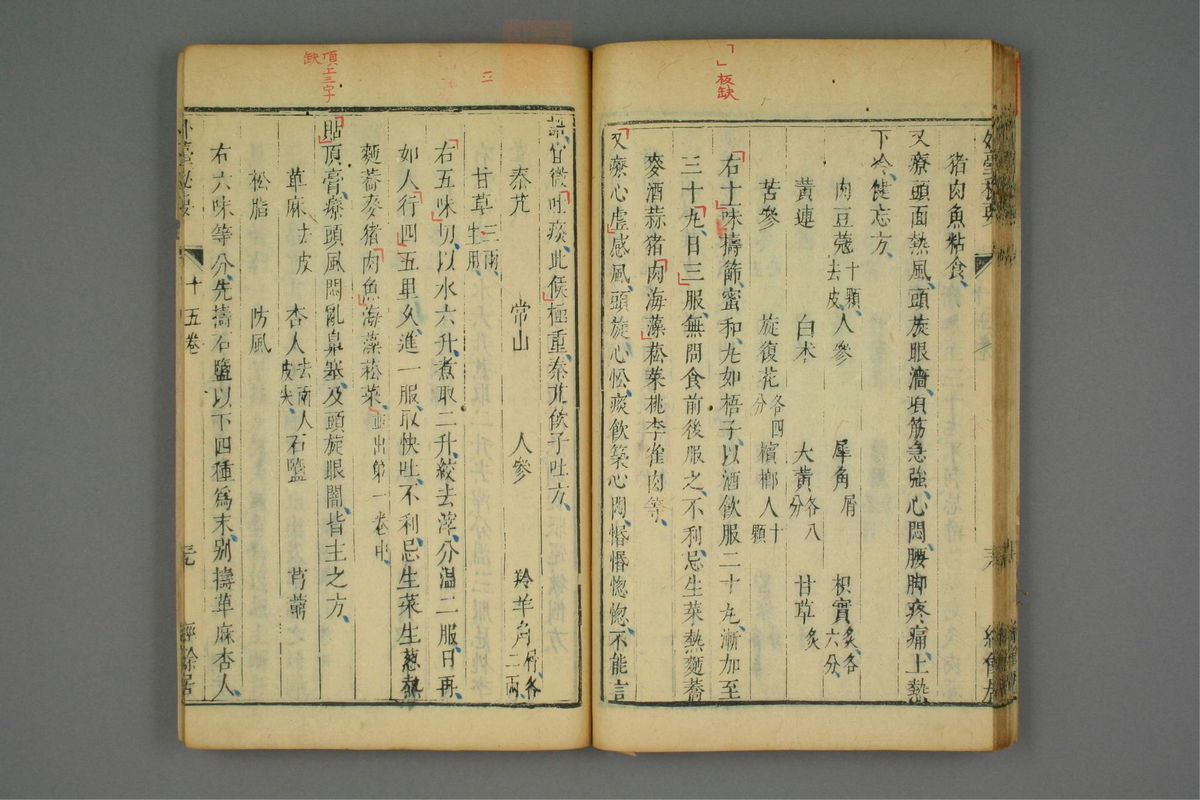 板缺
猪肉魚粘食
又療頭面熱風頭旋眼濇項筋急強心悶腰脚疼痛上熱
下冷健忘方
肉豆蔻十顆去皮 人參 犀角屑 枳實炙各六分
黃連 白朮 大黃各八分 甘草炙
苦參 旋復花各四分 檳榔人十顆
右十味擣篩蜜和丸如梧子以酒飲服二十丸漸加至
三十丸日三服無問食前後服之不利忌生菜熱麵蕎
麥酒蒜猪肉海藻菘菜桃李雀肉等
又療心虛感風頭旋心忪痰飲築心悶惛惛惚惚不能言
語宜微吐痰此候極重秦艽飲子吐方
秦艽 常山 人參 羚羊角屑各二兩
甘草三兩生用
右五味切以水六升煮取二升絞去滓分溫二服日再
如人行四五里久進一服取快吐不利忌生菜生葱熱
麵蕎麥猪肉魚海藻菘菜並出第一卷中
頂上三字缺
貼頂膏療頭風悶亂鼻塞及頭旋眼闇皆主之方
草麻去皮 杏人去兩人皮尖 石鹽 芎藭
松脂 防風
右六味等分先擣石鹽以下四種爲末別擣草麻杏人
十五卷
經餘居